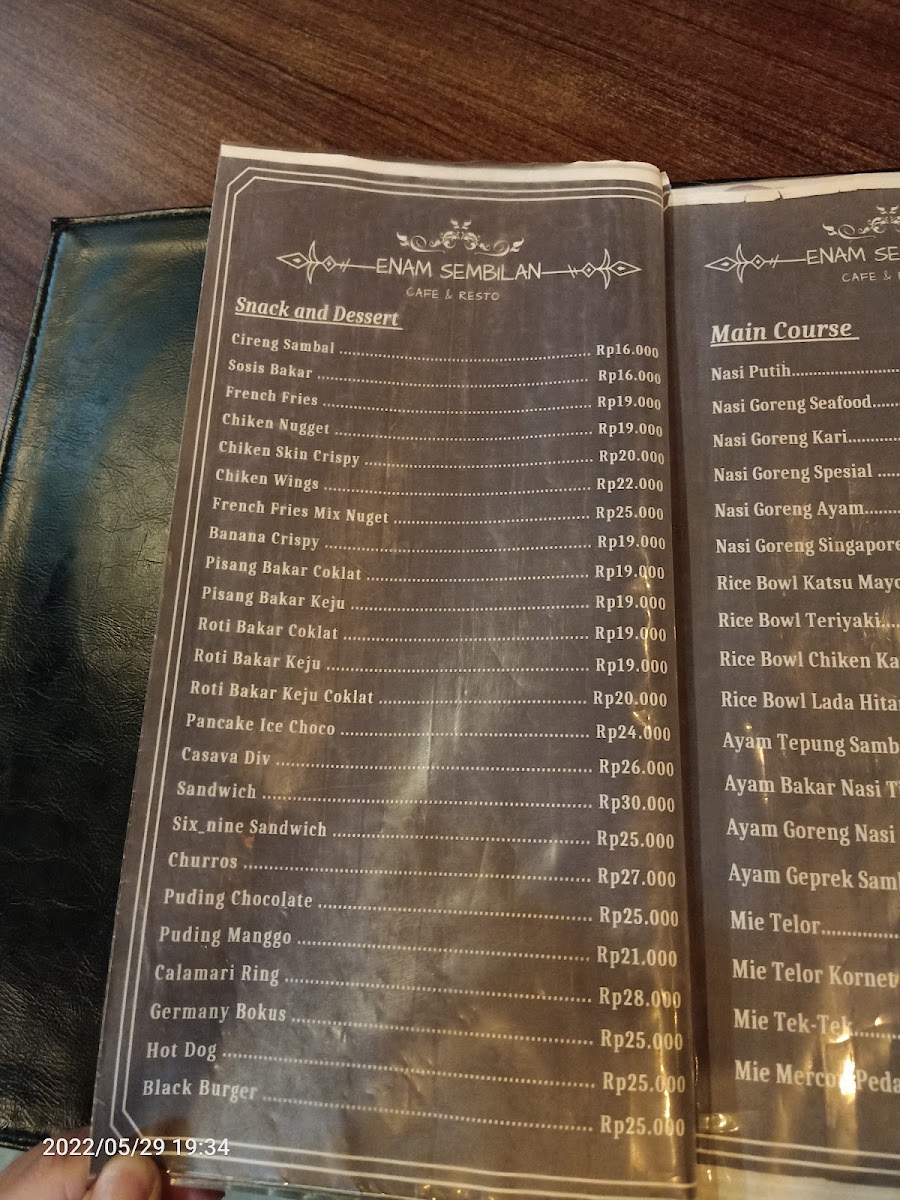 ENAM SEMBILAN
CAFE & RESTO
Snack and Dessert
Cireng Sambal ........ Rp16.000
Sosis Bakar ........ Rp16.000
French Fries ........ Rp19.000
Chiken Nugget ........ Rp19.000
Chiken Skin Crispy ........ Rp20.000
Chiken Wings ........ Rp22.000
French Fries Mix Nuget ........ Rp25.000
Banana Crispy ........ Rp19.000
Pisang Bakar Coklat ........ Rp19.000
Pisang Bakar Keju ........ Rp19.000
Roti Bakar Coklat ........ Rp19.000
Roti Bakar Keju ........ Rp19.000
Roti Bakar Keju Coklat ........ Rp20.000
Pancake Ice Choco ........ Rp24.000
Casava Div ........ Rp26.000
Sandwich ........ Rp30.000
Six_nine Sandwich ........ Rp25.000
Churros ........ Rp27.000
Puding Chocolate ........ Rp25.000
Puding Manggo ........ Rp21.000
Calamari Ring ........ Rp28.000
Germany Bokus ........ Rp25.000
Hot Dog ........ Rp25.000
Black Burger ........ Rp25.000
ENAM SE
CAFE &
Main Course
Nasi Putih........
Nasi Goreng Seafood.....
Nasi Goreng Kari........
Nasi Goreng Spesial .....
Nasi Goreng Ayam.....
Nasi Goreng Singapore
Rice Bowl Katsu Mayo
Rice Bowl Teriyaki....
Rice Bowl Chiken Ka
Rice Bowl Lada Hita
Ayam Tepung Samb
Ayam Bakar Nasi T
Ayam Goreng Nasi
Ayam Geprek Sam
Mie Telor........
Mie Telor Kornet
Mie Tek-Tek........
Mie Mercon Peda
2022/05/29 19:34